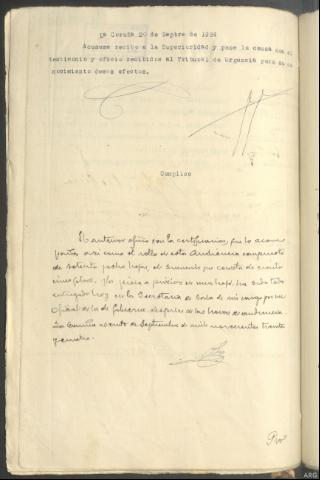 La Coruña 20 de Sepbre de 1934
Acusese recibo a la Superioridad y pase la causa con el
testimonio y oficio recibidos al Tribunal de Urgencia para su co
nocimiento demas efectos.
Cumplido
El anterior oficio con la certificación, que lo acom
paña, así como el rollo de esta Audiencia compuesto
de setenta y ocho hojas, el sumario que consta de ciento
y la pieza de en una hoja, ha sido todo
entregado hoy en la Secretaría de Sala de mi cargo por un
Oficial de la de Gobierno después de las horas de audiencia
La Coruña veinte de Septiembre de mil novecientos treinta
y cuatro.
ARG